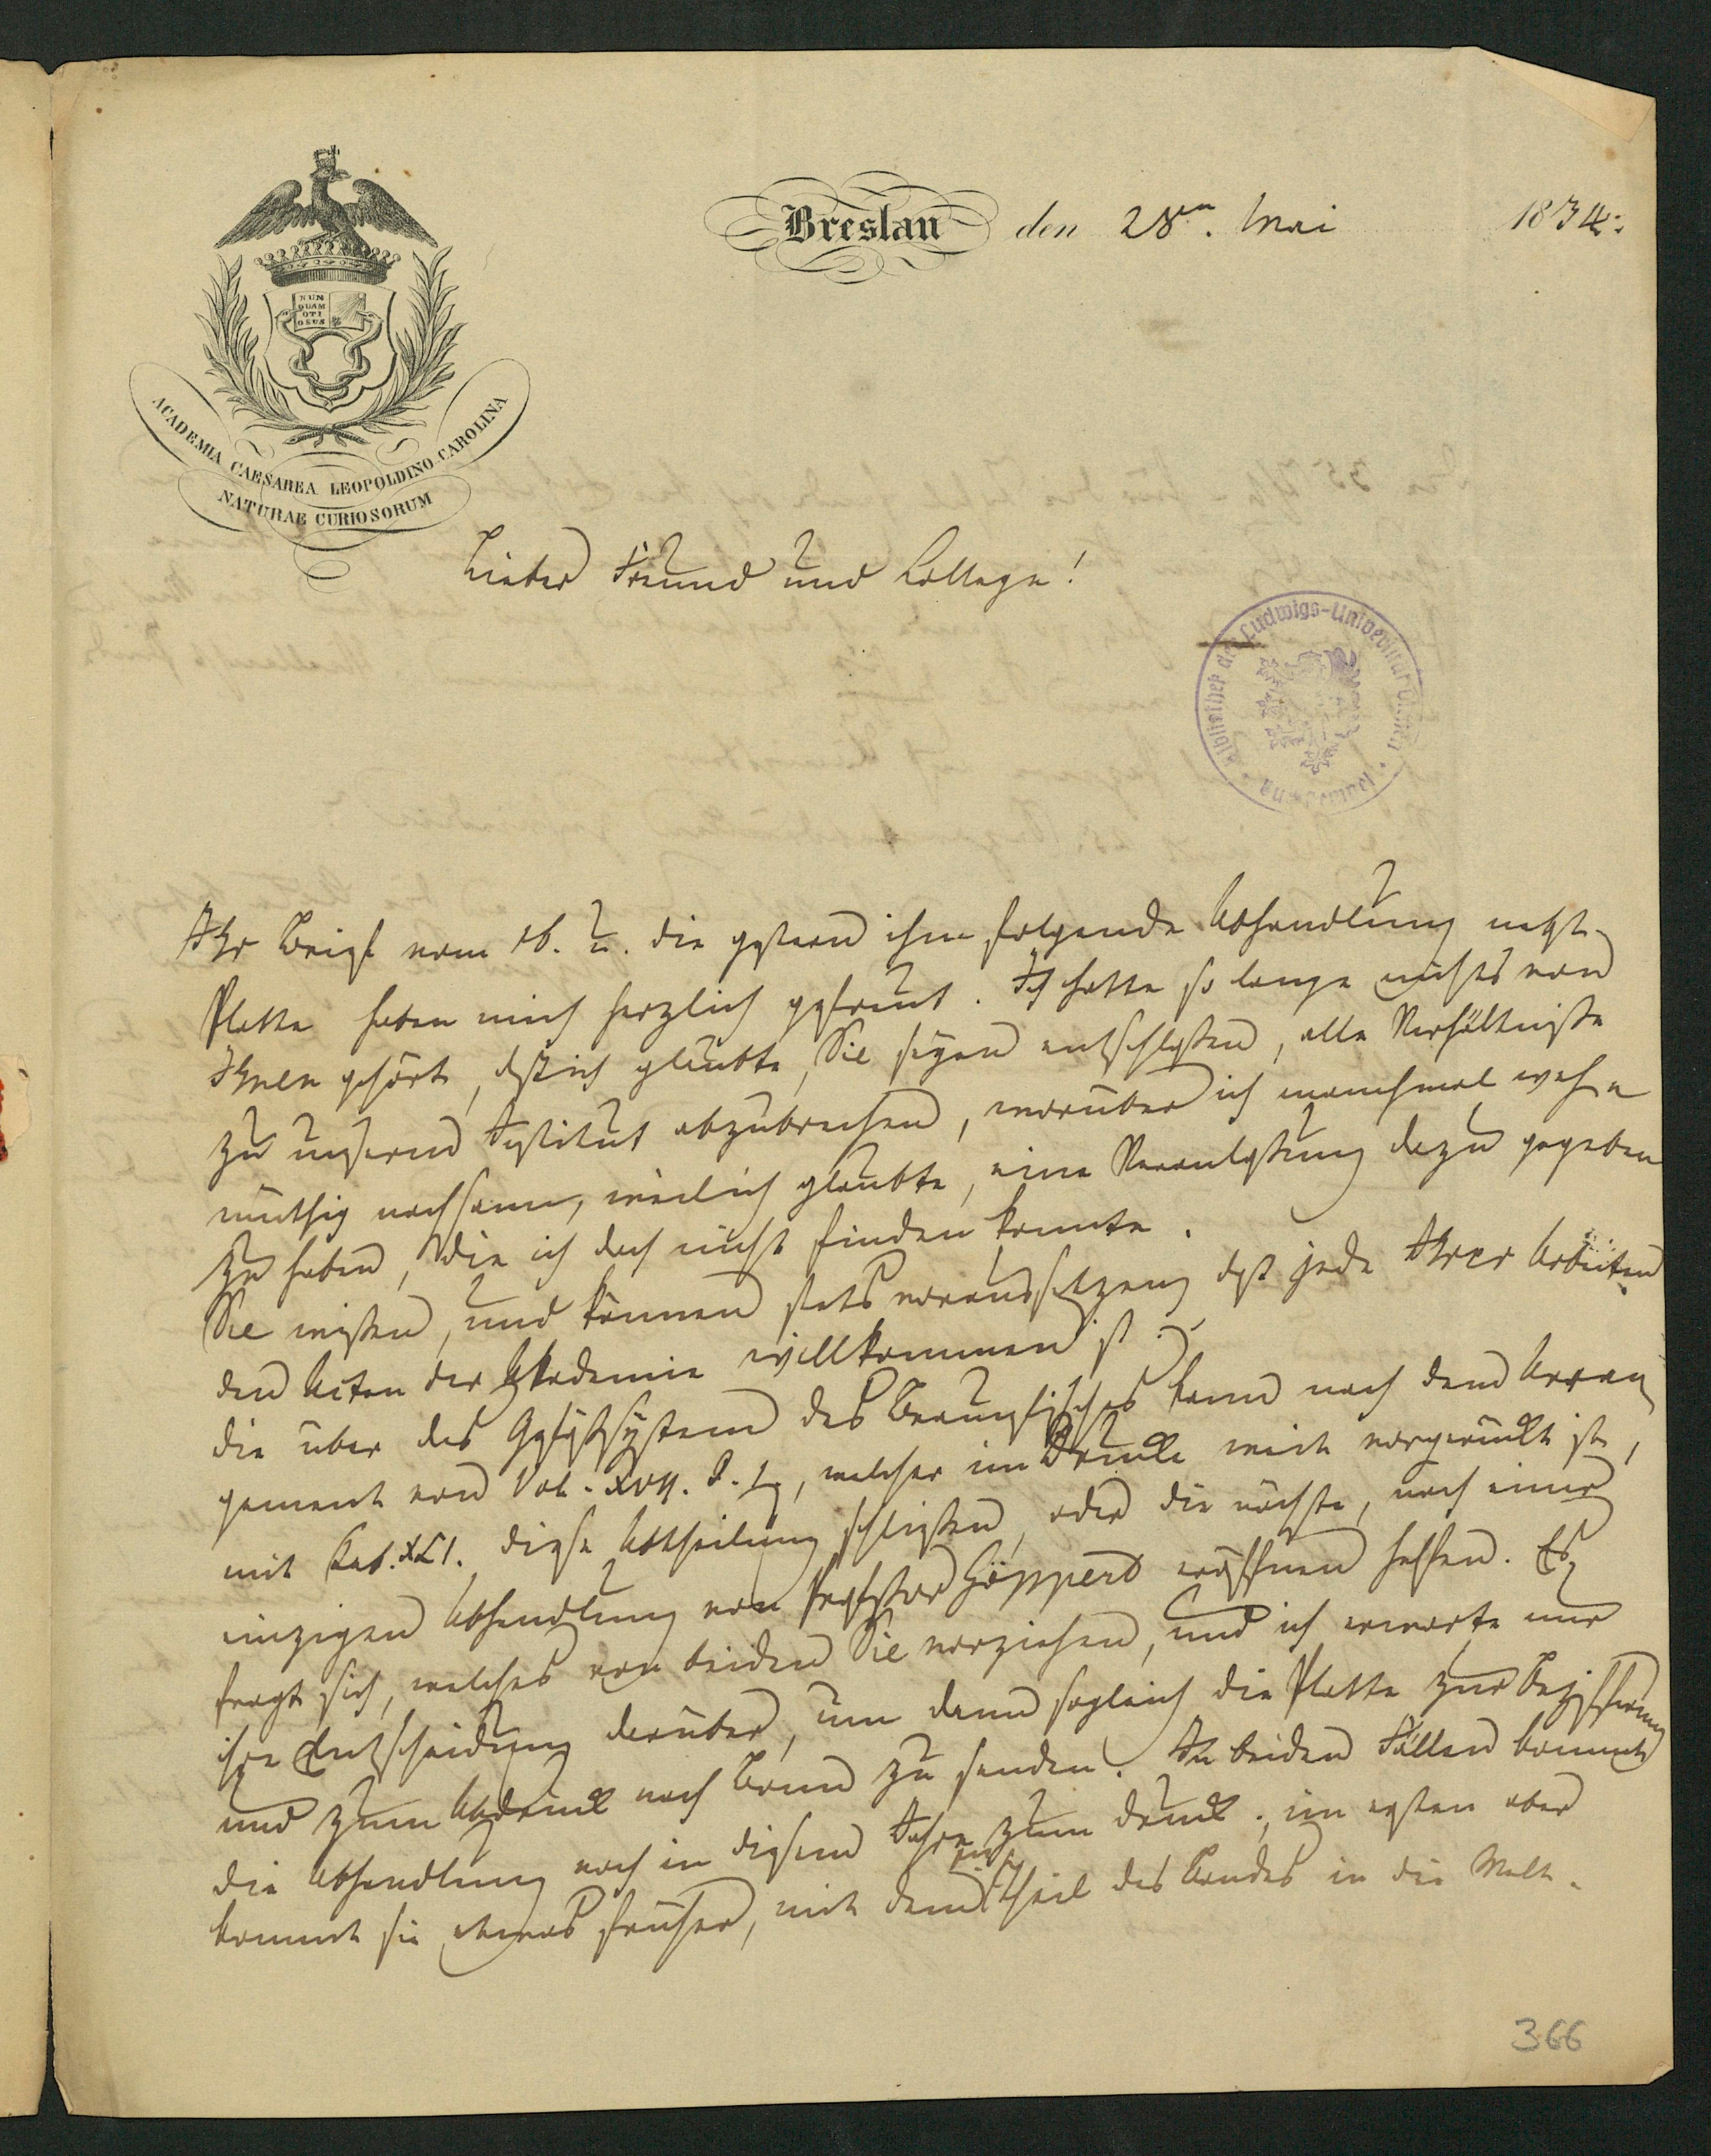 Breslau den 28n. Mai 1834.
NUN
QUAM
OTI
OSUS
ACADEMIA CAESAREA LEOPOLDINO CAROLINA
NATURAE CURIOSORUM
Lieber Freund und College!
Bibliothek der Ludwigs-Universität Giessen
Ihr Brief vom 16. u. die gestern ihm folgende Abhandlung nebst
Platte haben mich herzlich gefreut. Ich hatte so lange nichts von
Ihnen gehört, daß ich glaubte, Sie seyen entschlossen, alle Verhältnisse
zu unserem Institut abzubrechen, worüber ich manchmal weh
müthig nachsann, weil ich glaubte, eine Veranlassung dazu gegeben
zu haben, die ich doch nicht finden konnte.
Sie wissen, und können stets voraussetzen, daß jede Ihrer Arbeiten
den Acten der Akademie willkommen ist.
die über das Gefäßsystem des Braunfisches kann nach dem Arran
gement von Vol. XVII. P. I, welcher im Drucke weit vorgerückt ist,
mit Tab. XLI. diese Abtheilung schließen, oder die nächste, nach einer
einzigen Abhandlung von Professor Göppert eröffnen helfen. Es
fragt sich, welches von beiden Sie vorziehen, und ich erwarte nur
ihre Entscheidung darüber, um dann sogleich die Platte zur Bezifferung
und zum Abdruck nach Bonn zu senden. In beiden Fällen kommt
die Abhandlung noch in diesem Jahre zum Druck; im ersten aber
kommt sie etwas früher, mit dem Theil des Bandes in die Welt.
366